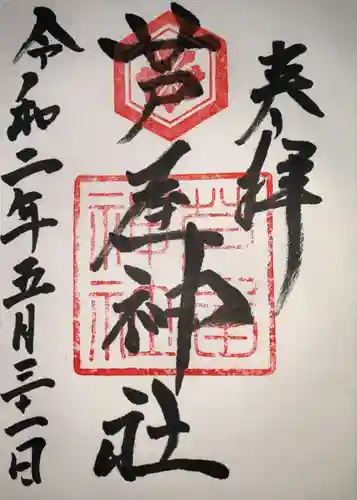 奉拝
芦屋神社
令和二年五月三十一日
芦屋
神社